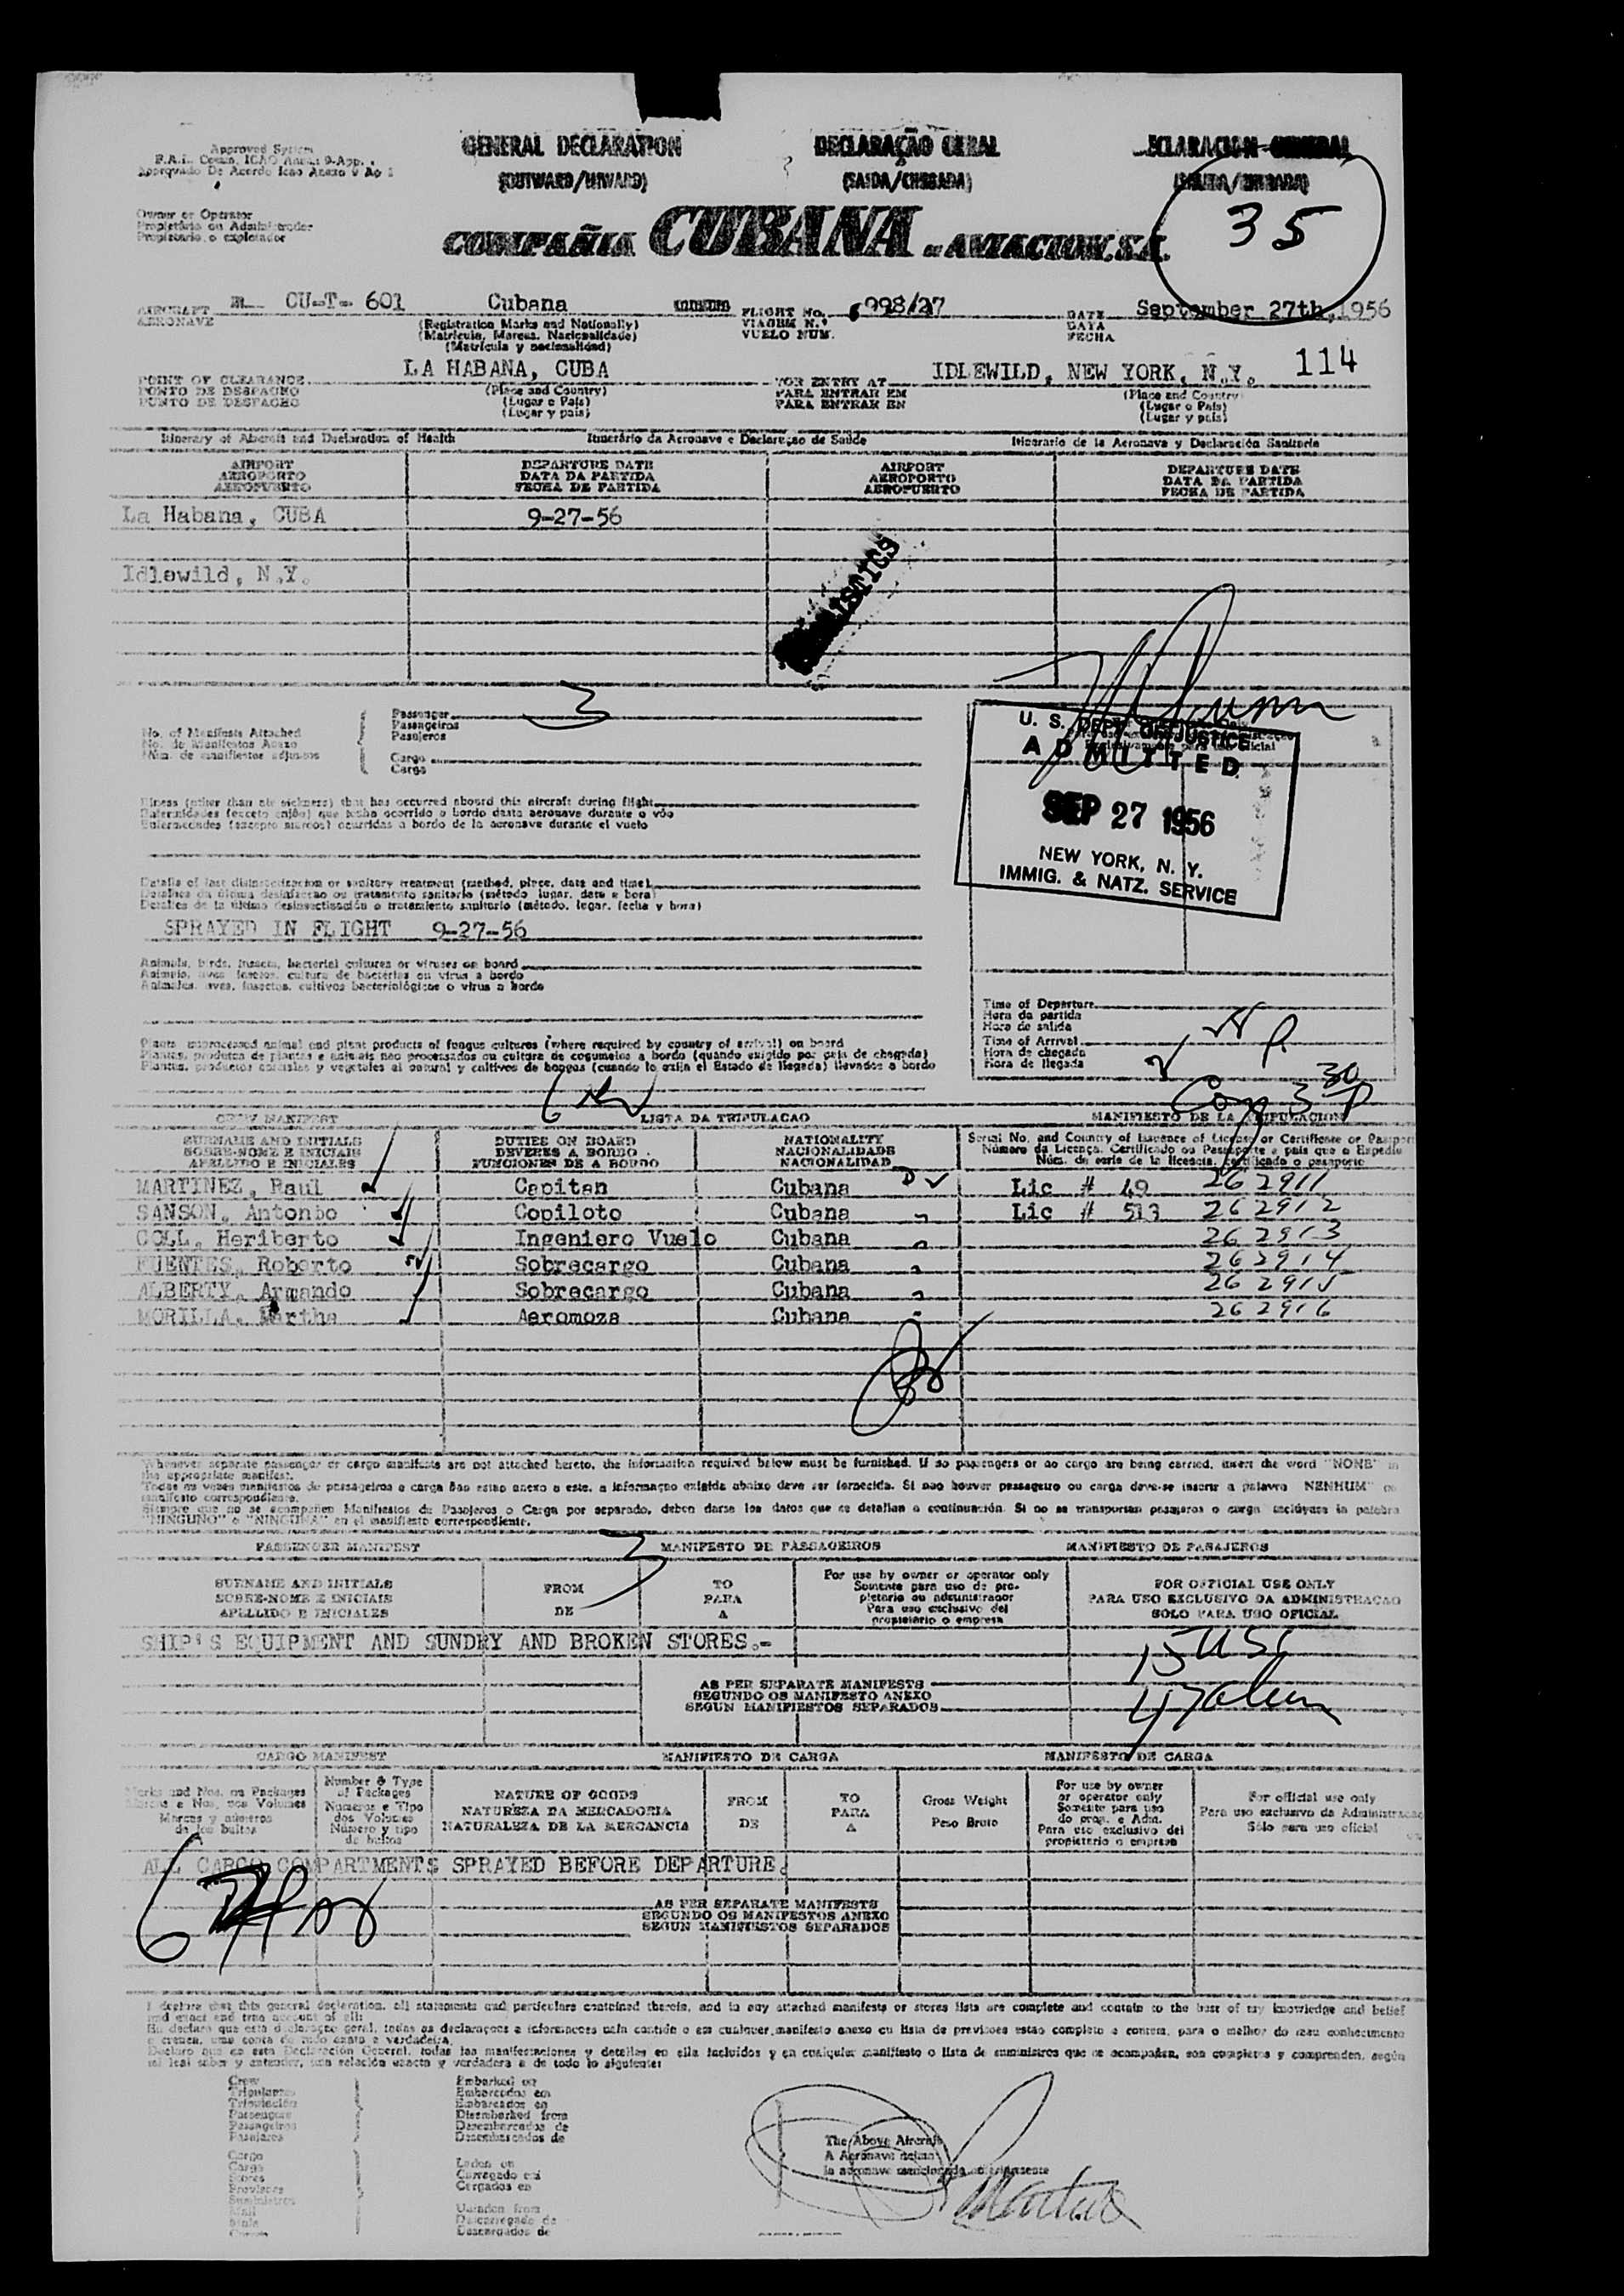 Approved System
F.A.L. Comm. ICAO Annex 9-App.
Approvado De Acordo Icao Anexo 9 Ap 1
GENERAL DECLARATION
(OUTWARD/INWARD)
DECLARAÇÃO GERAL
(SAIDA/CHEGADA)
DECLARACION GENERAL
35
Owner or Operator
Propietário ou Administrador
Propietario o explotador
COMPAÑIA CUBANA de AVIACION, S.A.
AIRCRAFT CU-T- 601 Cubana FLIGHT No. 998/27 DATE September 27th, 1956
AERONAVE (Registration Marks and Nationally) VIAGEM N.º DATA
(Matrícula, Marcas, Nacionalidade) VUELO NUM. FECHA
(Matrícula y nacionalidad)
114
POINT OF CLEARANCE LA HABANA, CUBA FOR ENTRY AT IDLEWILD, NEW YORK, N.Y.
PONTO DE DESPACHO (Place and Country) PARA ENTRAR EM (Place and Country)
PUNTO DE DESPACHO (Lugar e País) PARA ENTRAR EN (Lugar o País)
(Lugar y país) (Lugar y país)
Itinerary of Aircraft and Declaration of Health Itinerário da Aeronave e Declaração de Saúde Itinerario de la Aeronave y Declaración Sanitaria
AIRPORT DEPARTURE DATE AIRPORT DEPARTURE DATE
AEROPORTO DATA DA PARTIDA AEROPORTO DATA DA PARTIDA
AEROPUERTO FECHA DE PARTIDA AEROPUERTO FECHA DE PARTIDA
La Habana, CUBA 9-27-56
Idlewild, N.Y.
No. of Manifests Attached
No. de Manifestos Anexo
Núm. de manifiestos adjuntos
Passenger 3
Passageiros
Pasajeros
Cargo
Carga
U. S. DEPT. OF JUSTICE
ADMITTED
SEP 27 1956
NEW YORK, N. Y.
IMMIG. & NATZ. SERVICE
Illness (other than air sickness) that has occurred aboard this aircraft during flight
Enfermidades (exceto enjôo) que tenha ocorrido a bordo desta aeronave durante o vôo
Enfermedades (excepto mareos) ocurridas a bordo de la aeronave durante el vuelo
Details of last disinsectization or sanitary treatment (method, place, date and time)
Detalhes da última desinfecção ou tratamento sanitario (método, lugar, data e hora)
Detalles de la última desinsectización o tratamiento sanitario (método, lugar, fecha y hora)
SPRAYED IN FLIGHT 9-27-56
Animals, birds, insects, bacterial cultures or viruses on board
Animais, aves, insetos, cultura de bactérias ou virus a bordo
Animales, aves, insectos, cultivos bacteriológicos o virus a bordo
Time of Departure
Hora da partida
Hora de salida
Time of Arrival
Hora de chegada
Hora de llegada
Plants, unprocessed animal and plant products of fungus cultures (where required by country of arrival) on board
Plantas, produtos de plantas e animais nao processados ou cultura de cogumelos a bordo (quando exigido por país de chegada)
Plantas, productos animales y vegetales al natural y cultivos de hongos (cuando lo exija el Estado de llegada) llevados a bordo
CREW MANIFEST LISTA DA TRIPULACAO MANIFIESTO DE LA TRIPULACION
SURNAME AND INITIALS DUTIES ON BOARD NATIONALITY Serial No. and Country of Issuance of License or Certificate or Passport
SOBRE-NOME E INICIAIS DEVERES A BORDO NACIONALIDADE Número da Licença, Certificado ou Passaporte e país que o Expediu
APELLIDO E INICIALES FUNCIONES DE A BORDO NACIONALIDAD Núm. de serie de la licencia, certificado o pasaporte
MARTINEZ, Raul Capitan Cubana Lic # 49 262911
SANSON, Antonbo Copiloto Cubana Lic # 513 262912
COLL, Heriberto Ingeniero Vuelo Cubana 262913
FUENTES, Roberto Sobrecargo Cubana 262914
ALBERTY, Armando Sobrecargo Cubana 262915
MORILLA, Martha Aeromoza Cubana 262916
Whenever separate passenger or cargo manifests are not attached hereto, the information required below must be furnished. If no passengers or no cargo are being carried, insert the word "NONE" in
the appropriate manifest.
Todas as vezes manifestos de passageiros e carga não estao anexo a este, a informaçao exigida abaixo deve ser fornecida. Si nao houver passageiro ou carga deve-se inserir a palavra NENHUM" no
manifesto correspondiente.
Siempre que no se acompañen Manifiestos de Pasajeros o Carga por separado, deben darse los datos que se detallan a continuación. Si no se transportan pasajeros o carga inclúyase la palabra
"NINGUNO" o "NINGUNA" en el manifiesto correspondiente.
PASSENGER MANIFEST 3 MANIFESTO DE PASSAGEIROS MANIFIESTO DE PASAJEROS
SURNAME AND INITIALS FROM TO For use by owner or operator only FOR OFFICIAL USE ONLY
SOBRE-NOME E INICIAIS PARA Somente para uso do pro- PARA USO EXCLUSIVO DA ADMINISTRACAO
APELLIDO E INICIALES DE A pietario ou administrador SOLO PARA USO OFICIAL
Para uso exclusivo del
propietario o empresa
SHIP'S EQUIPMENT AND SUNDRY AND BROKEN STORES.-
15 USC
47 alien
AS PER SEPARATE MANIFESTS
SEGUNDO OS MANIFESTO ANEXO
SEGUN MANIFIESTOS SEPARADOS
CARGO MANIFEST MANIFIESTO DE CARGA MANIFESTO DE CARGA
Marks and Nos. on Packages Number & Type of Packages NATURE OF GOODS FROM TO Gross Weight For use by owner or operator only For official use only
Marcas e Nos. nos Volumes Numeros e Tipo dos Volumes NATUREZA DA MERCADORIA PARA Somente para uso do prop. e Adm. Para uso exclusivo da Administracao
Marcas y números de los bultos Número y tipo de bultos NATURALEZA DE LA MERCANCIA DE A Peso Bruto Para uso exclusivo del propietario o empresa Sólo para uso oficial
ALL CARGO COMPARTMENTS SPRAYED BEFORE DEPARTURE.
AS PER SEPARATE MANIFESTS
SEGUNDO OS MANIFESTOS ANEXO
SEGUN MANIFIESTOS SEPARADOS
I declare that this general declaration, all statements and particulars contained therein, and in any attached manifests or stores lists are complete and contain to the best of my knowledge and belief
and exact and true account of all:
Declaro que en esta Declaración General, todas las manifestaciones y detalles en ella incluidos y en cualquier manifiesto o lista de suministros que se acompañen, son completos y comprenden, según
mi leal saber y entender, una relación exacta y verdadera e de todo lo siguiente:
Crew
Tripulantes
Tripulación
Passengers
Passageiros
Pasajeros
Embarked on
Embarcados em
Embarcados en
Disembarked from
Desembarcados de
Desembarcados de
Cargo
Carga
Stores
Provisoes
Suministros
Mail
Mala
Correo
Laden on
Carregado em
Cargados en
Unladen from
Descarregado de
Descargados de
The Above Aircraft
A Aeronave acima
la aeronave mencionada anteriormente